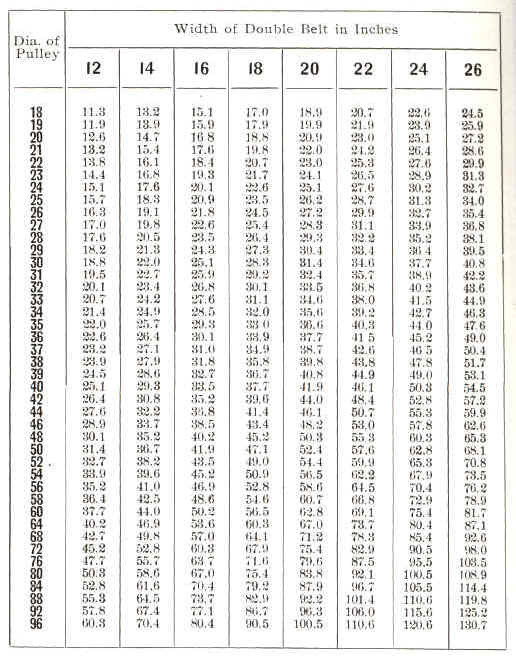 Dia. of Pulley Width of Double Belt in Inches
12 14 16 18 20 22 24 26
18 11.3 13.2 15.1 17.0 18.9 20.7 22.6 24.5
19 11.9 13.9 15.9 17.9 19.9 21.9 23.9 25.9
20 12.6 14.7 16 8 18.8 20.9 23.0 25.1 27.2
21 13.2 15.4 17.6 19.8 22.0 24.2 26.4 28.6
22 13.8 16.1 18.4 20.7 23.0 25.3 27.6 29.9
23 14.4 16.8 19.3 21.7 24.1 26.5 28.9 31.3
24 15.1 17.6 20.1 22.6 25.1 27.6 30.2 32.7
25 15.7 18.3 20.9 23.5 26.2 28.7 31.3 34.0
26 16.3 19.1 21.8 24.5 27.2 29.9 32.7 35.4
27 17.0 19.8 22.6 25.4 28.3 31.1 33.9 36.8
28 17.6 20.5 23.5 26.4 29.3 32.2 35.2 38.1
29 18.2 21.3 24.3 27.3 30.4 33.4 36 4 39.5
30 18.8 22.0 25.1 28.3 31.4 34.6 37.7 40.8
31 19.5 22.7 25.9 29.2 32.4 35.7 38.9 42.2
32 20.1 23.4 26.8 30.1 33.5 36.8 40 2 43.6
33 20.7 24.2 27.6 31.1 34.6 38.0 41.5 44.9
34 21.4 24.9 28.5 32.0 35.6 39.2 42.7 46.3
35 22.0 25.7 29.3 33 0 36.6 40.3 44 0 47.6
36 22.6 26.4 30.1 33.9 37.7 41 5 45.2 49.0
37 23.2 27.1 31.0 34.9 38.7 42.6 46 5 50.4
38 23.9 27.9 31.8 35.8 39.8 43.8 47.8 51.7
39 24.5 28.6 32.7 36.7 40.8 44.9 49.0 53.1
40 25.1 29.3 33.5 37.7 41.9 46.1 50.3 54.5
42 26.4 30.8 35.2 39.6 44.0 48.4 52.8 57.2
44 27.6 32.2 36.8 41.4 46.1 50.7 55.3 59.9
46 28.9 33.7 38.5 43.4 48.2 53.0 57.8 62.6
48 30.1 35.2 40.2 45.2 50.3 55.3 60.3 65.3
50 31.4 36.7 41.9 47.1 52.4 57.6 62.8 68.1
52 32.7 38.2 43.5 49.0 54.4 59.9 65.3 70.8
54 33.9 39.6 45.2 50.9 56.5 62.2 67.9 73.5
56 35.2 41.0 46.9 52.8 58.6 64.5 70.4 76.2
58 36.4 42.5 48.6 54.6 60.7 66.8 72.9 78.9
60 37.7 44.0 50.2 56.5 62.8 69.1 75.4 81.7
64 40.2 46.9 53.6 60.3 67.0 73.7 80.4 87.1
68 42.7 49.8 57.0 64.1 71.2 78.3 85.4 92.6
72 45.2 52.8 60.3 67.9 75.4 82.9 90.5 98.0
76 47.7 55.7 63 7 71.6 79.6 87.5 95.5 103.5
80 50.3 58.6 67.0 75.4 83.8 92.1 100.5 108.9
84 52.8 61.6 70.4 79.2 87.9 96.7 105.5 114.4
88 55.3 64.5 73.7 82.9 92.2 101.4 110.6 119.8
92 57.8 67.4 77.1 86.7 96.3 106.0 115.6 125.2
96 60.3 70.4 80.4 90.5 100.5 110.6 120.6 130.7